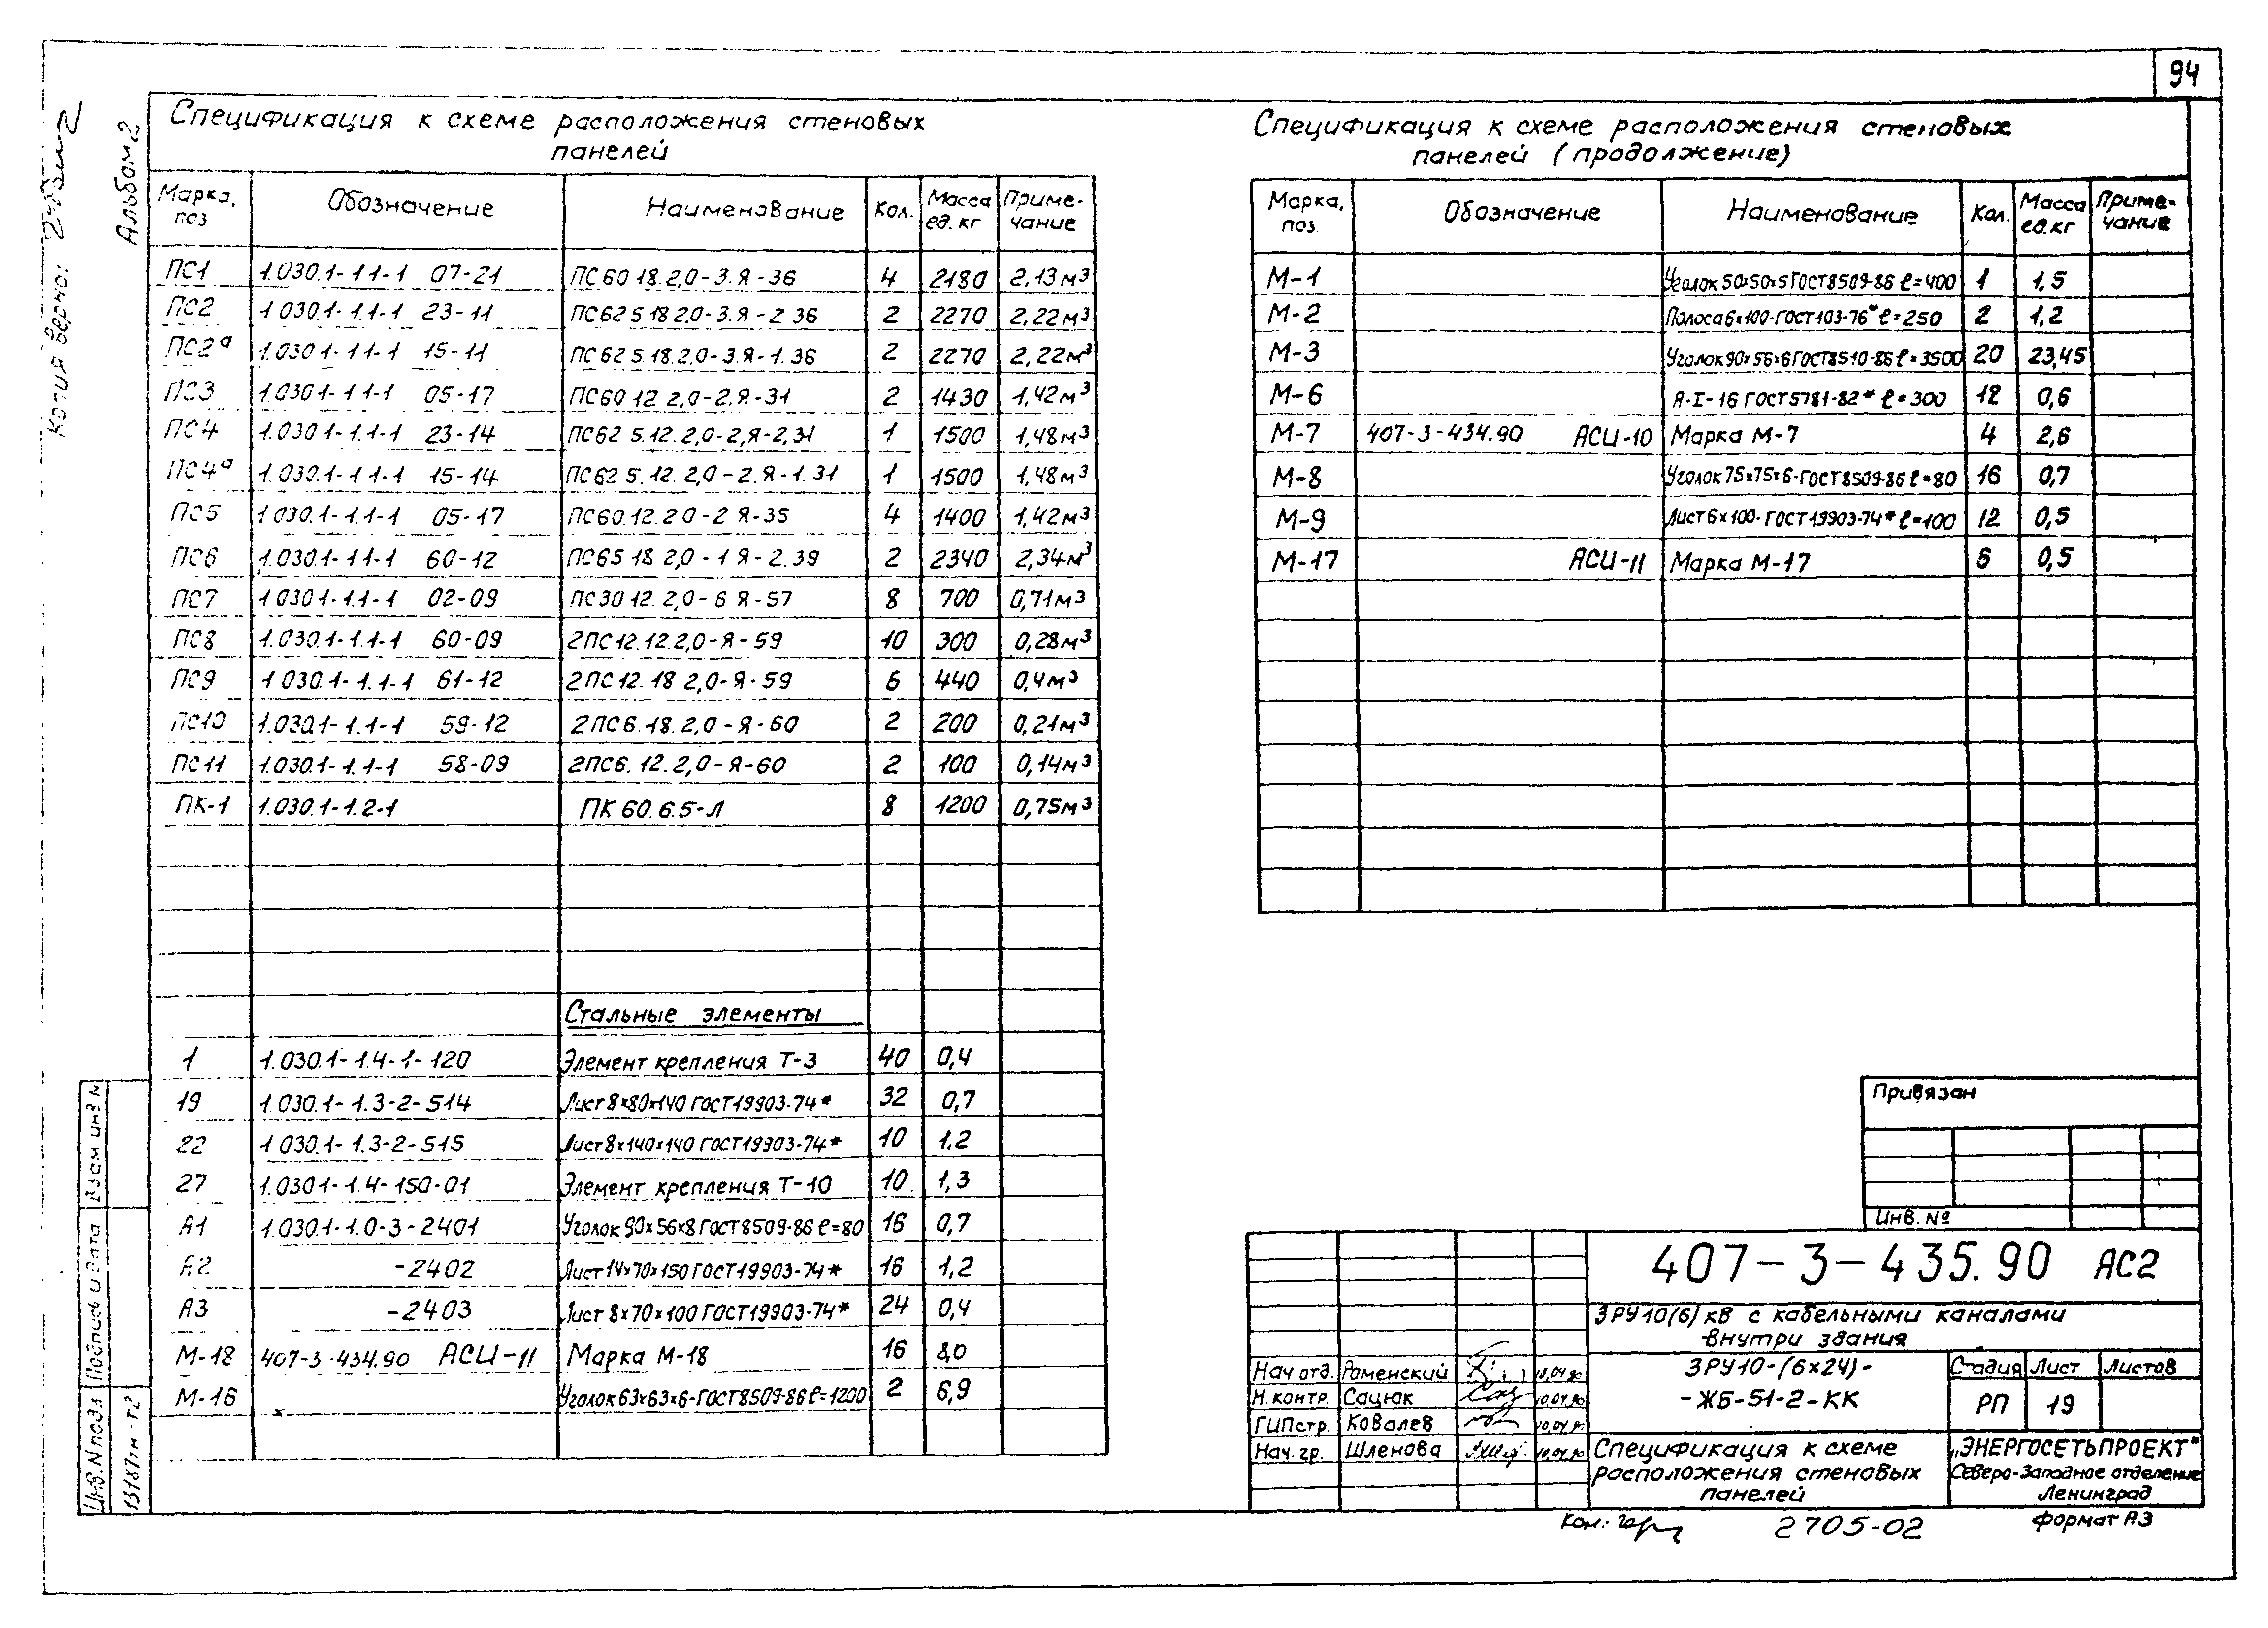 94
Альбом 2
Копия верна:
Спецификация к схеме расположения стеновых
панелей
Марка, поз Обозначение Наименование Кол. Масса ед. кг Приме-чание
ПС1 1.030.1-1.1-1 07-21 ПС60 18.2,0-3.Я-36 4 2180 2,13м³
ПС2 1 030.1-1.1-1 23-11 ПС62 5 18 2,0-3.Я-2 36 2 2270 2,22м³
ПС2ᵃ 1.030 1-1 1-1 15-11 ПС62 5.18.2,0-3.Я-1.36 2 2270 2,22м³
ПС3 1.030 1-1 1-1 05-17 ПС60 12 2,0-2.Я-31 2 1430 1,42м³
ПС4 1.030 1-1.1-1 23-14 ПС62 5.12.2,0-2,Я-2,31 1 1500 1,48м³
ПС4ᵃ 1.030.1-1 1-1 15-14 ПС62 5.12.2,0-2.Я-1.31 1 1500 1,48м³
ПС5 1 030.1-1.1-1 05-17 ПС60.12.2 0-2 Я-35 4 1400 1,42м³
ПС6 1.030.1-1 1-1 60-12 ПС65 18 2,0-1 Я-2.39 2 2340 2,34м³
ПС7 1 030 1-1.1-1 02-09 ПС30 12.2,0-6 Я-57 8 700 0,71м³
ПС8 1.030.1-1.1-1 60-09 2ПС12.12.2,0-Я-59 10 300 0,28м³
ПС9 1 030.1-1.1-1 61-12 2ПС12.18 2,0-Я-59 6 440 0,4м³
ПС10 1.030.1-1.1-1 59-12 2ПС6.18.2,0-Я-60 2 200 0,21м³
ПС11 1.030.1-1.1-1 58-09 2ПС6.12.2,0-Я-60 2 100 0,14м³
ПК-1 1.030.1-1.2-1 ПК 60.6.5-Л 8 1200 0,75м³
Стальные элементы
1 1.030.1-1.4-1-120 Элемент крепления Т-3 40 0,4
19 1.030.1-1.3-2-514 Лист 8х80х140 ГОСТ19903-74* 32 0,7
22 1 030.1-1.3-2-515 Лист 8х140х140 ГОСТ19903-74* 10 1.2
27 1.030 1-1.4-150-01 Элемент крепления Т-10 10 1,3
А1 1.030.1-1.0-3-2401 Уголок 90х56х8 ГОСТ8509-86 ℓ=80 16 0,7
А2 -2402 Лист 14х70х150 ГОСТ19903-74* 16 1,2
А3 -2403 Лист 8х70х100 ГОСТ19903-74* 24 0,4
М-18 407-3-434.90 АСИ-11 Марка М-18 16 8,0
М-16 Уголок 63х63х6-ГОСТ8509-86 ℓ=1200 2 6,9
Спецификация к схеме расположения стеновых
панелей (продолжение)
Марка, поз. Обозначение Наименование Кол. Масса ед.кг Приме-чание
М-1 Уголок 50х50х5 ГОСТ8509-86 ℓ=400 1 1,5
М-2 Полоса 6х100-ГОСТ103-76* ℓ=250 2 1,2
М-3 Уголок 90х56х6 ГОСТ8510-86 ℓ=3500 20 23,45
М-6 Я-I-16 ГОСТ5781-82* ℓ=300 12 0,6
М-7 407-3-434.90 АСИ-10 Марка М-7 4 2,6
М-8 Уголок 75х75х6-ГОСТ8509-86 ℓ=80 16 0,7
М-9 Лист 6х100-ГОСТ19903-74* ℓ=100 12 0,5
М-17 АСИ-11 Марка М-17 6 0,5
Привязан
Инв. №
407-3-435.90 АС2
ЗРУ10(6)кВ с кабельными каналами
внутри здания
ЗРУ10-(6х24)-
-ЖБ-51-2-КК
Стадия Лист Листов
РП 19
Нач отд. Роменский 10.04.90
Н. контр. Сацюк 10.04.90
ГИПстр. Ковалев 10.04.90
Нач. гр. Шленова 10.04.90
Спецификация к схеме
расположения стеновых
панелей
„ЭНЕРГОСЕТЬПРОЕКТ"
Северо-Западное отделение
Ленинград
Кол.: 2705-02 формат А3
Взам инв N
Подпись и дата
Инв. N подл
13187тм-т2